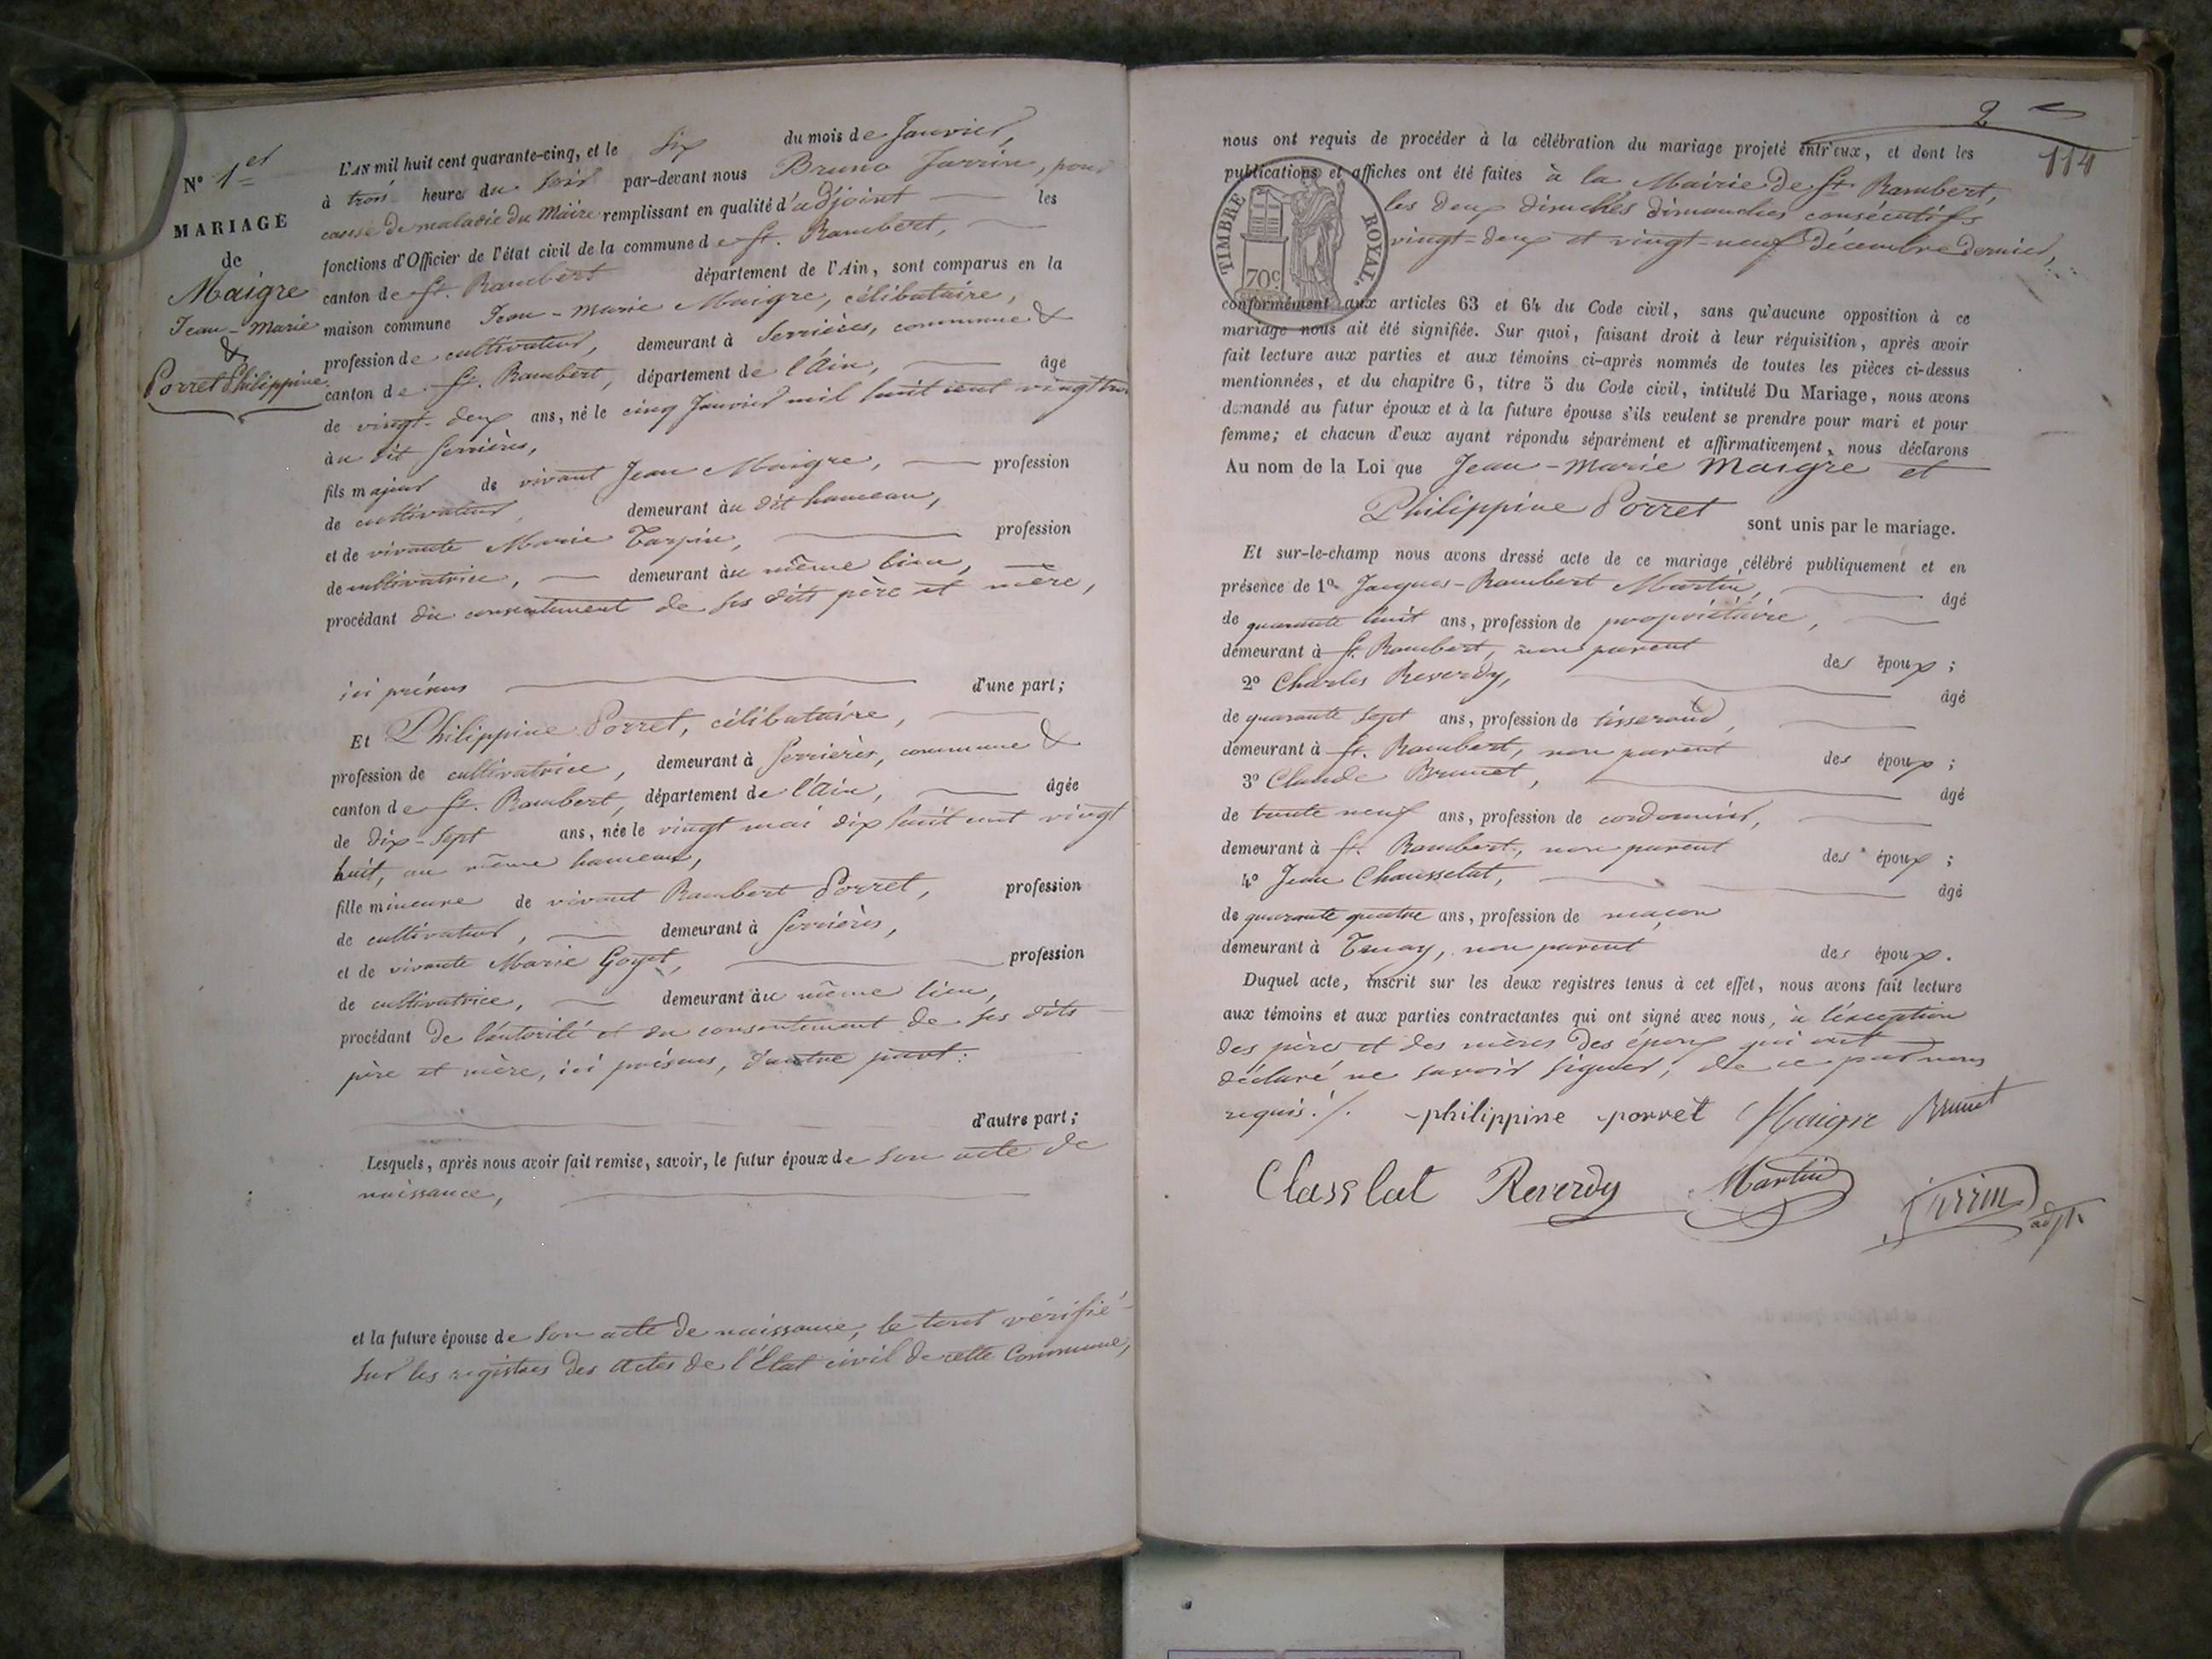 N° 1er
MARIAGE
de
Maigre
Jean-Marie
&
Porret Philippine
L'AN mil huit cent quarante-cinq, et le Six du mois de Janvier,
à trois heure du soir par-devant nous Bruno Jarrin, pour
cause de maladie du Maire remplissant en qualité d'adjoint les
fonctions d'Officier de l'état civil de la commune de St. Rambert,
canton de St. Rambert département de l'Ain, sont comparus en la
maison commune Jean-Marie Maigre, célibataire,
profession de cultivateur, demeurant à Serrières, commune &
canton de St. Rambert, département de l'Ain, âgé
de vingt-deux ans, né le cinq Janvier mil huit cent vingt trois
au dit Serrières,
fils majeur de vivant Jean Maigre, profession
de cultivateur, demeurant au dit hameau,
et de vivante Marie Tarpin, profession
de cultivatrice, demeurant au même lieu,
procédant du consentement de ses dits père et mère,
ici présens d'une part;
Et Philippine Porret, célibataire,
profession de cultivatrice, demeurant à Serrières, commune &
canton de St. Rambert, département de l'Ain, âgée
de dix-sept ans, née le vingt mai dix huit cent vingt
huit, au même hameau,
fille mineure de vivant Rambert Porret, profession
de cultivateur, demeurant à Serrières,
et de vivante Marie Goyet, profession
de cultivatrice, demeurant au même lieu,
procédant de l'autorité et du consentement de ses dits
père et mère, ici présens, d'autre part:
d'autre part;
Lesquels, après nous avoir fait remise, savoir, le futur époux de son acte de
naissance,
et la future épouse de son acte de naissance, le tout vérifié
sur les registres des actes de l'Etat civil de cette Commune,
2
114
nous ont requis de procéder à la célébration du mariage projeté entr'eux, et dont les
publications et affiches ont été faites à la Mairie de St. Rambert,
les deux dimanches consécutifs
vingt-deux et vingt-neuf décembre dernier,
TIMBRE ROYAL.
70c
conformément aux articles 63 et 64 du Code civil, sans qu'aucune opposition à ce
mariage nous ait été signifiée. Sur quoi, faisant droit à leur réquisition, après avoir
fait lecture aux parties et aux témoins ci-après nommés de toutes les pièces ci-dessus
mentionnées, et du chapitre 6, titre 5 du Code civil, intitulé Du Mariage, nous avons
demandé au futur époux et à la future épouse s'ils veulent se prendre pour mari et pour
femme; et chacun d'eux ayant répondu séparément et affirmativement, nous déclarons
Au nom de la Loi que Jean-Marie Maigre et
Philippine Porret sont unis par le mariage.
Et sur-le-champ nous avons dressé acte de ce mariage célébré publiquement et en
présence de 1° Jacques-Rambert Martin, âgé
de quarante huit ans, profession de propriétaire,
demeurant à St. Rambert, non parent des époux;
2° Charles Reverdy, âgé
de quarante sept ans, profession de tisserand,
demeurant à St. Rambert, non parent des époux;
3° Claude Brunet, âgé
de trente neuf ans, profession de cordonnier,
demeurant à St. Rambert, non parent des époux;
4° Jean Chausselat, âgé
de quarante quatre ans, profession de maçon
demeurant à Tenay, non parent des époux.
Duquel acte, inscrit sur les deux registres tenus à cet effet, nous avons fait lecture
aux témoins et aux parties contractantes qui ont signé avec nous, à l'exception
des pères et des mères des époux qui ont
déclaré ne savoir signer, de ce par nous
requis./. philippine porret Maigre Brunet
Classlat Reverdy Martin Jarrin
adjt.